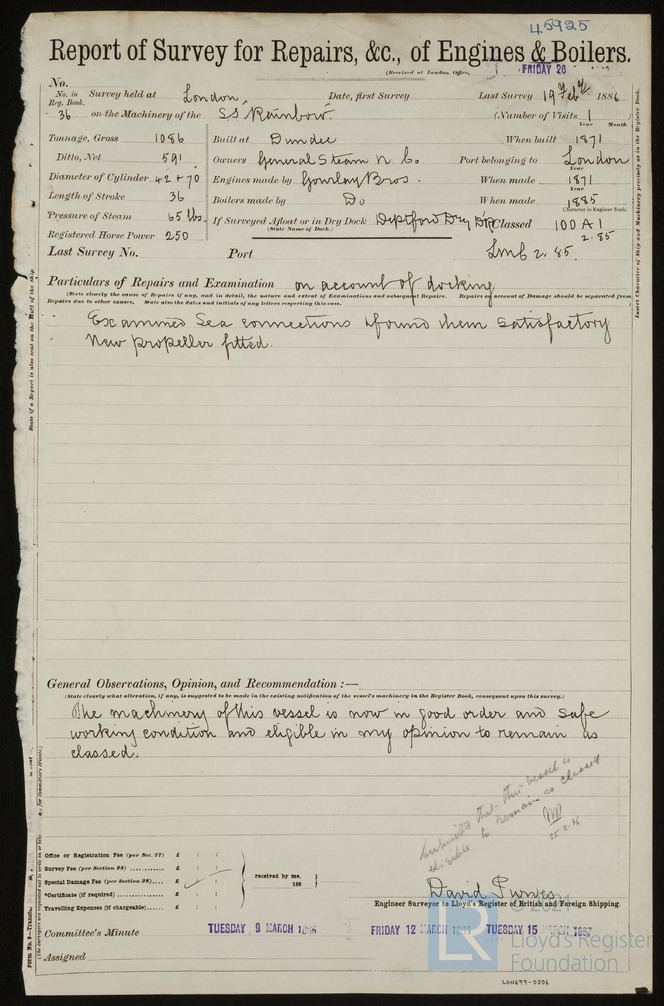 45925
Report of Survey for Repairs, &c., of Engines & Boilers.
(Received at London Office, FRIDAY 26
No.
No. in Reg. Book. Survey held at London, Date, first Survey Last Survey 19 Feby 1886
36 on the Machinery of the SS Rainbow. (Number of Visits 1
Year Month
Tonnage, Gross 1086 Built at Dundee When built 1871
Ditto, Net 591 Owners General Steam N. Co. Port belonging to London
Year
Diameter of Cylinder 42 + 70 Engines made by Gourlay Bros. When made 1871
Year
Length of Stroke 36 Boilers made by Do When made 1885
Character in Register Book.
Pressure of Steam 65 lbs. If Surveyed Afloat or in Dry Dock Deptford Dry Dk Classed 100 A 1
(State Name of Dock.) 2.85
Registered Horse Power 250
Last Survey No. Port LMC 2.85.
Particulars of Repairs and Examination on account of docking
(State clearly the cause of Repairs if any, and in detail, the nature and extent of Examinations and subsequent Repairs. Repairs on account of Damage should be separated from
Repairs due to other causes. State also the dates and initials of any letters respecting this case.
Examined Sea connections & found them satisfactory
New propeller fitted.
General Observations, Opinion, and Recommendation :—
(State clearly what alteration, if any, is suggested to be made in the existing notification of the vessel's machinery in the Register Book, consequent upon this survey.)
The machinery of this vessel is now in good order and safe
working condition and eligible in my opinion to remain as
classed.
Submitted that this vessel is
eligible to remain as classed
25.2.86
Office or Registration Fee (per Sec. 27) £ : :
Survey Fee (per Section 28) £ : :
Special Damage Fee (per Section 28) £ : :
*Certificate (if required) £ : :
Travelling Expenses (if chargeable) £ : :
received by me,
188
David Purves
Engineer Surveyor to Lloyd's Register of British and Foreign Shipping.
Committee's Minute TUESDAY 9 MARCH 1886 FRIDAY 12 MARCH 1886 TUESDAY 15 MARCH 1887
Assigned
State if a Report is also sent on the Hull of the Ship.
Insert Character of Ship and Machinery precisely as in the Register Book.
LR
© 2021
Lloyd's Register
Foundation
LON677-0006